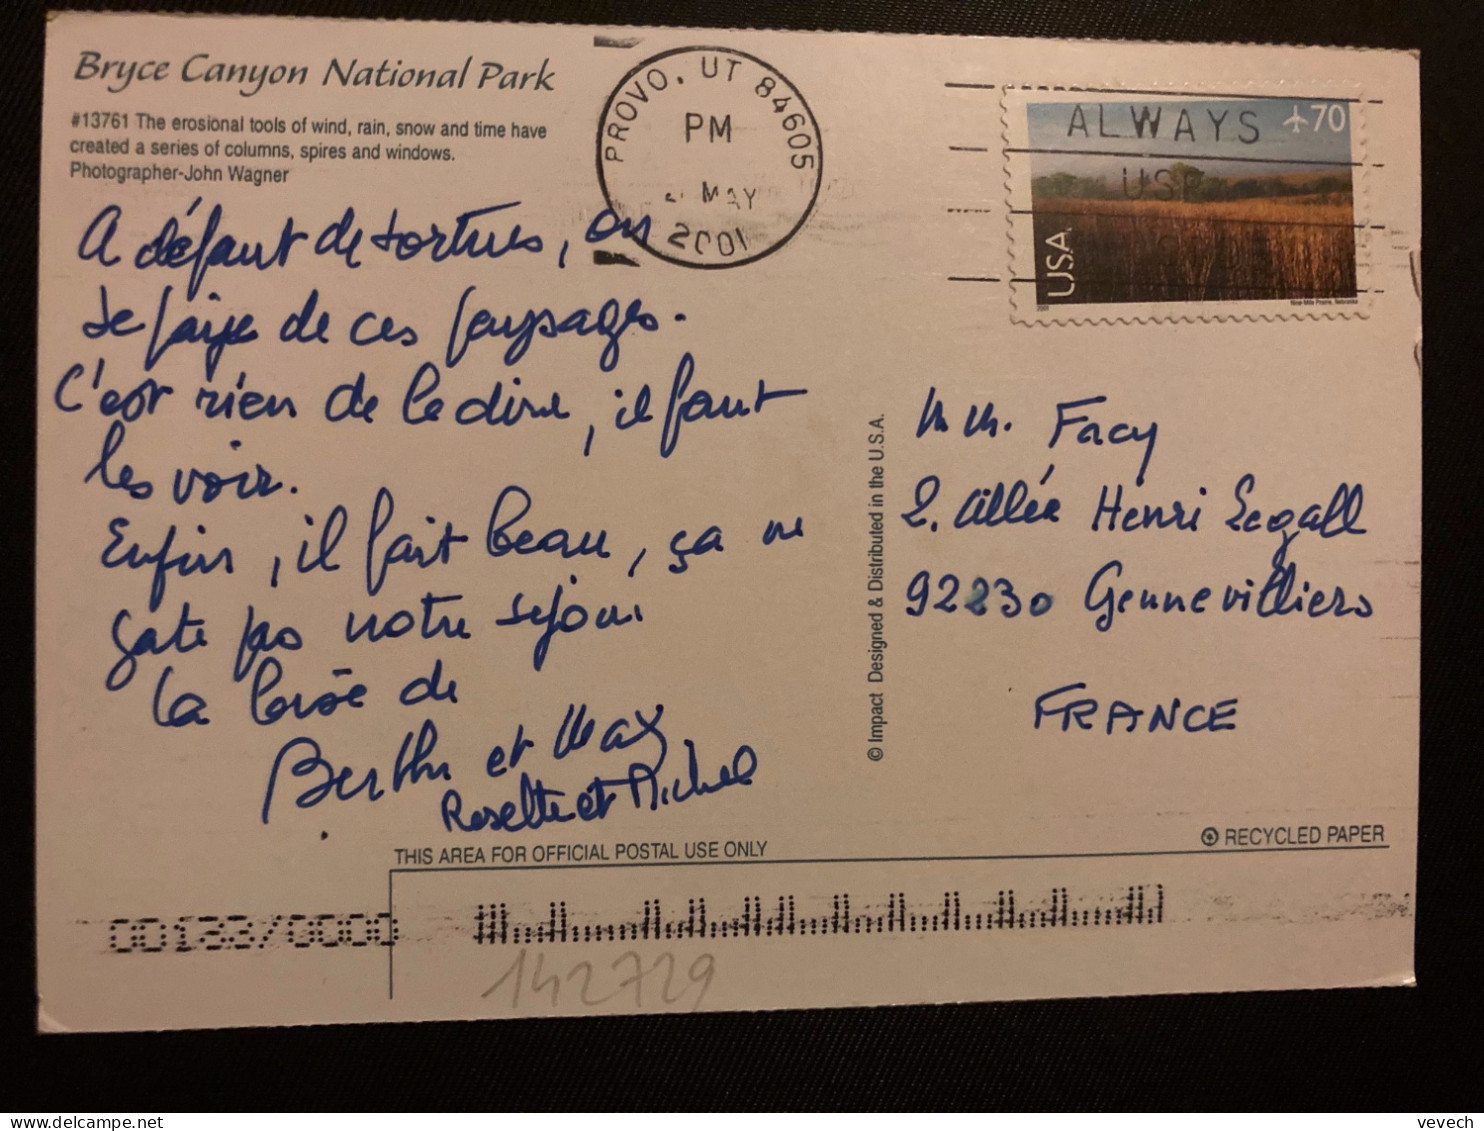 Bryce Canyon National Park
#13761 The erosional tools of wind, rain, snow and time have
created a series of columns, spires and windows.
Photographer-John Wagner
PROVO, UT 84605
PM
MAY
2001
ALWAYS
US
70
USA
2001
Nine-Mile Prairie, Nebraska
A défaut de tortues, on
se paye de ces paysages.
C'est rien de le dire, il faut
les voir.
Enfin, il fait beau, ça ne
gate pas notre sejour
La bise de
Berthe et Max
Rosette et Michel
M M. Facy
2. Allée Henri Segall
92230 Gennevilliers
FRANCE
© Impact Designed & Distributed in the U.S.A.
THIS AREA FOR OFFICIAL POSTAL USE ONLY
RECYCLED PAPER
00133/0000
142729
vevech